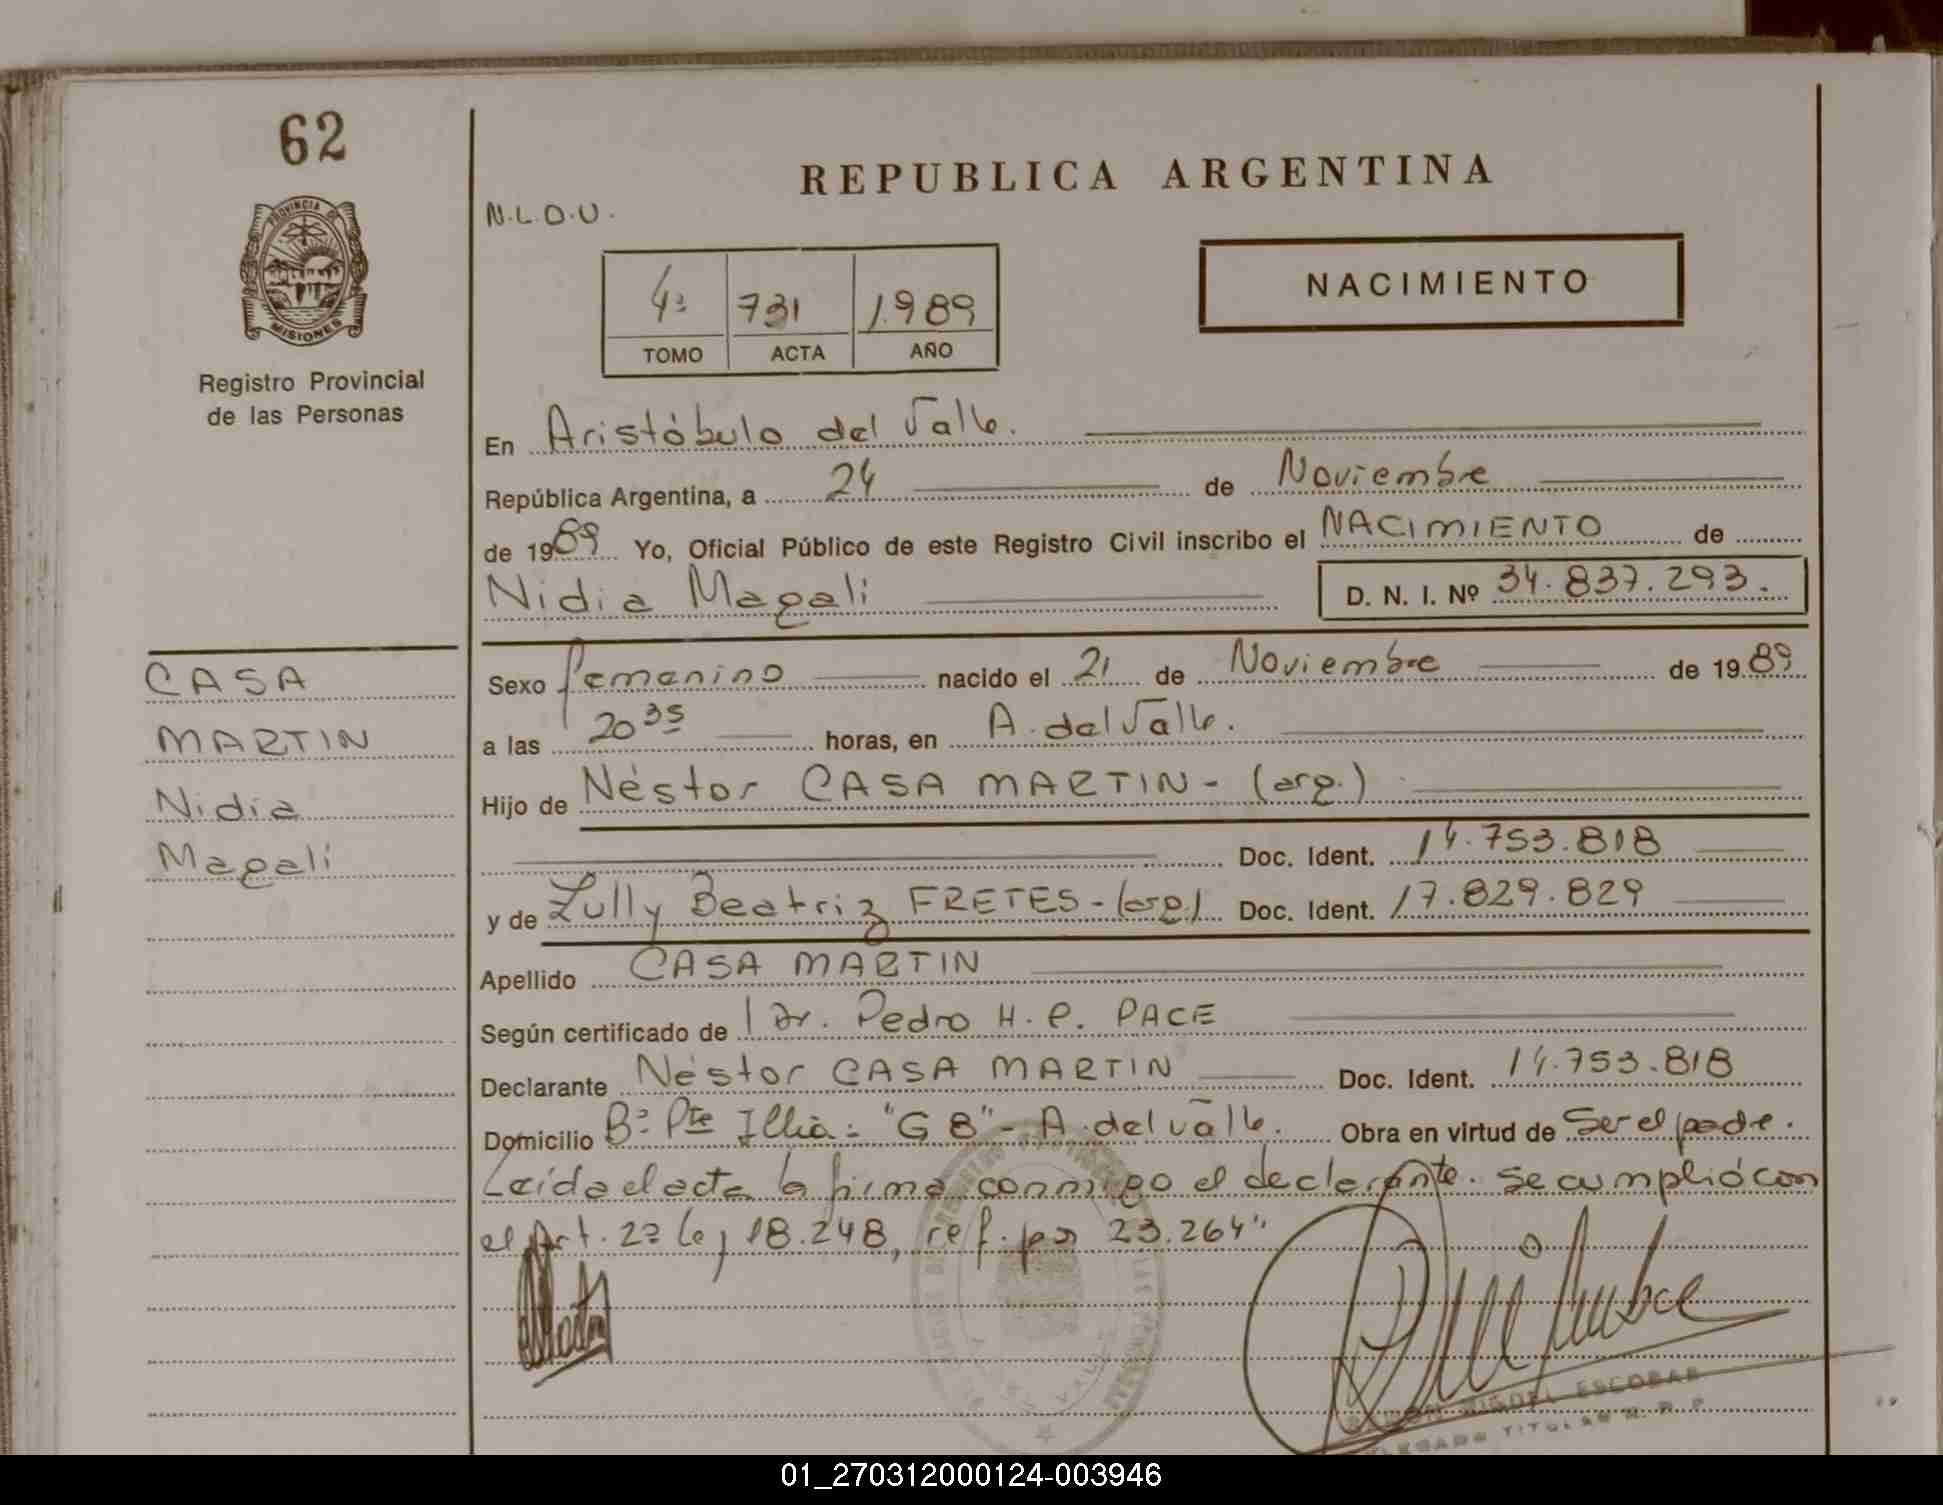 62
PROVINCIA DE
MISIONES
Registro Provincial
de las Personas
CASA
MARTIN
Nidia
Magali
REPUBLICA ARGENTINA
N.L.O.U.
4ª 731 1989
TOMO ACTA AÑO
NACIMIENTO
En Aristóbulo del Valle.
República Argentina, a 24 de Noviembre
de 1989 Yo, Oficial Público de este Registro Civil inscribo el NACIMIENTO de
Nidia Magali D. N. I. Nº 34.837.293.
Sexo femenino nacido el 21 de Noviembre de 1989
a las 20 35 horas, en A. del Valle.
Hijo de Néstor CASA MARTIN - (arg.)
Doc. Ident. 14.753.818
y de Lully Beatriz FRETES - (arg.) Doc. Ident. 17.829.829
Apellido CASA MARTIN
Según certificado de Dr. Pedro H. P. PACE
Declarante Néstor CASA MARTIN Doc. Ident. 14.753.818
Domicilio Bº Pte Illia: "G 8" - A. del Valle. Obra en virtud de Ser el padre.
Leída el acta la firma conmigo el declarante. Se cumplió con
el Art. 2º ley 18.248, ref. por 23.264"
MIGUEL ESCOBAR
TITULAR R. P. P.
01_270312000124-003946